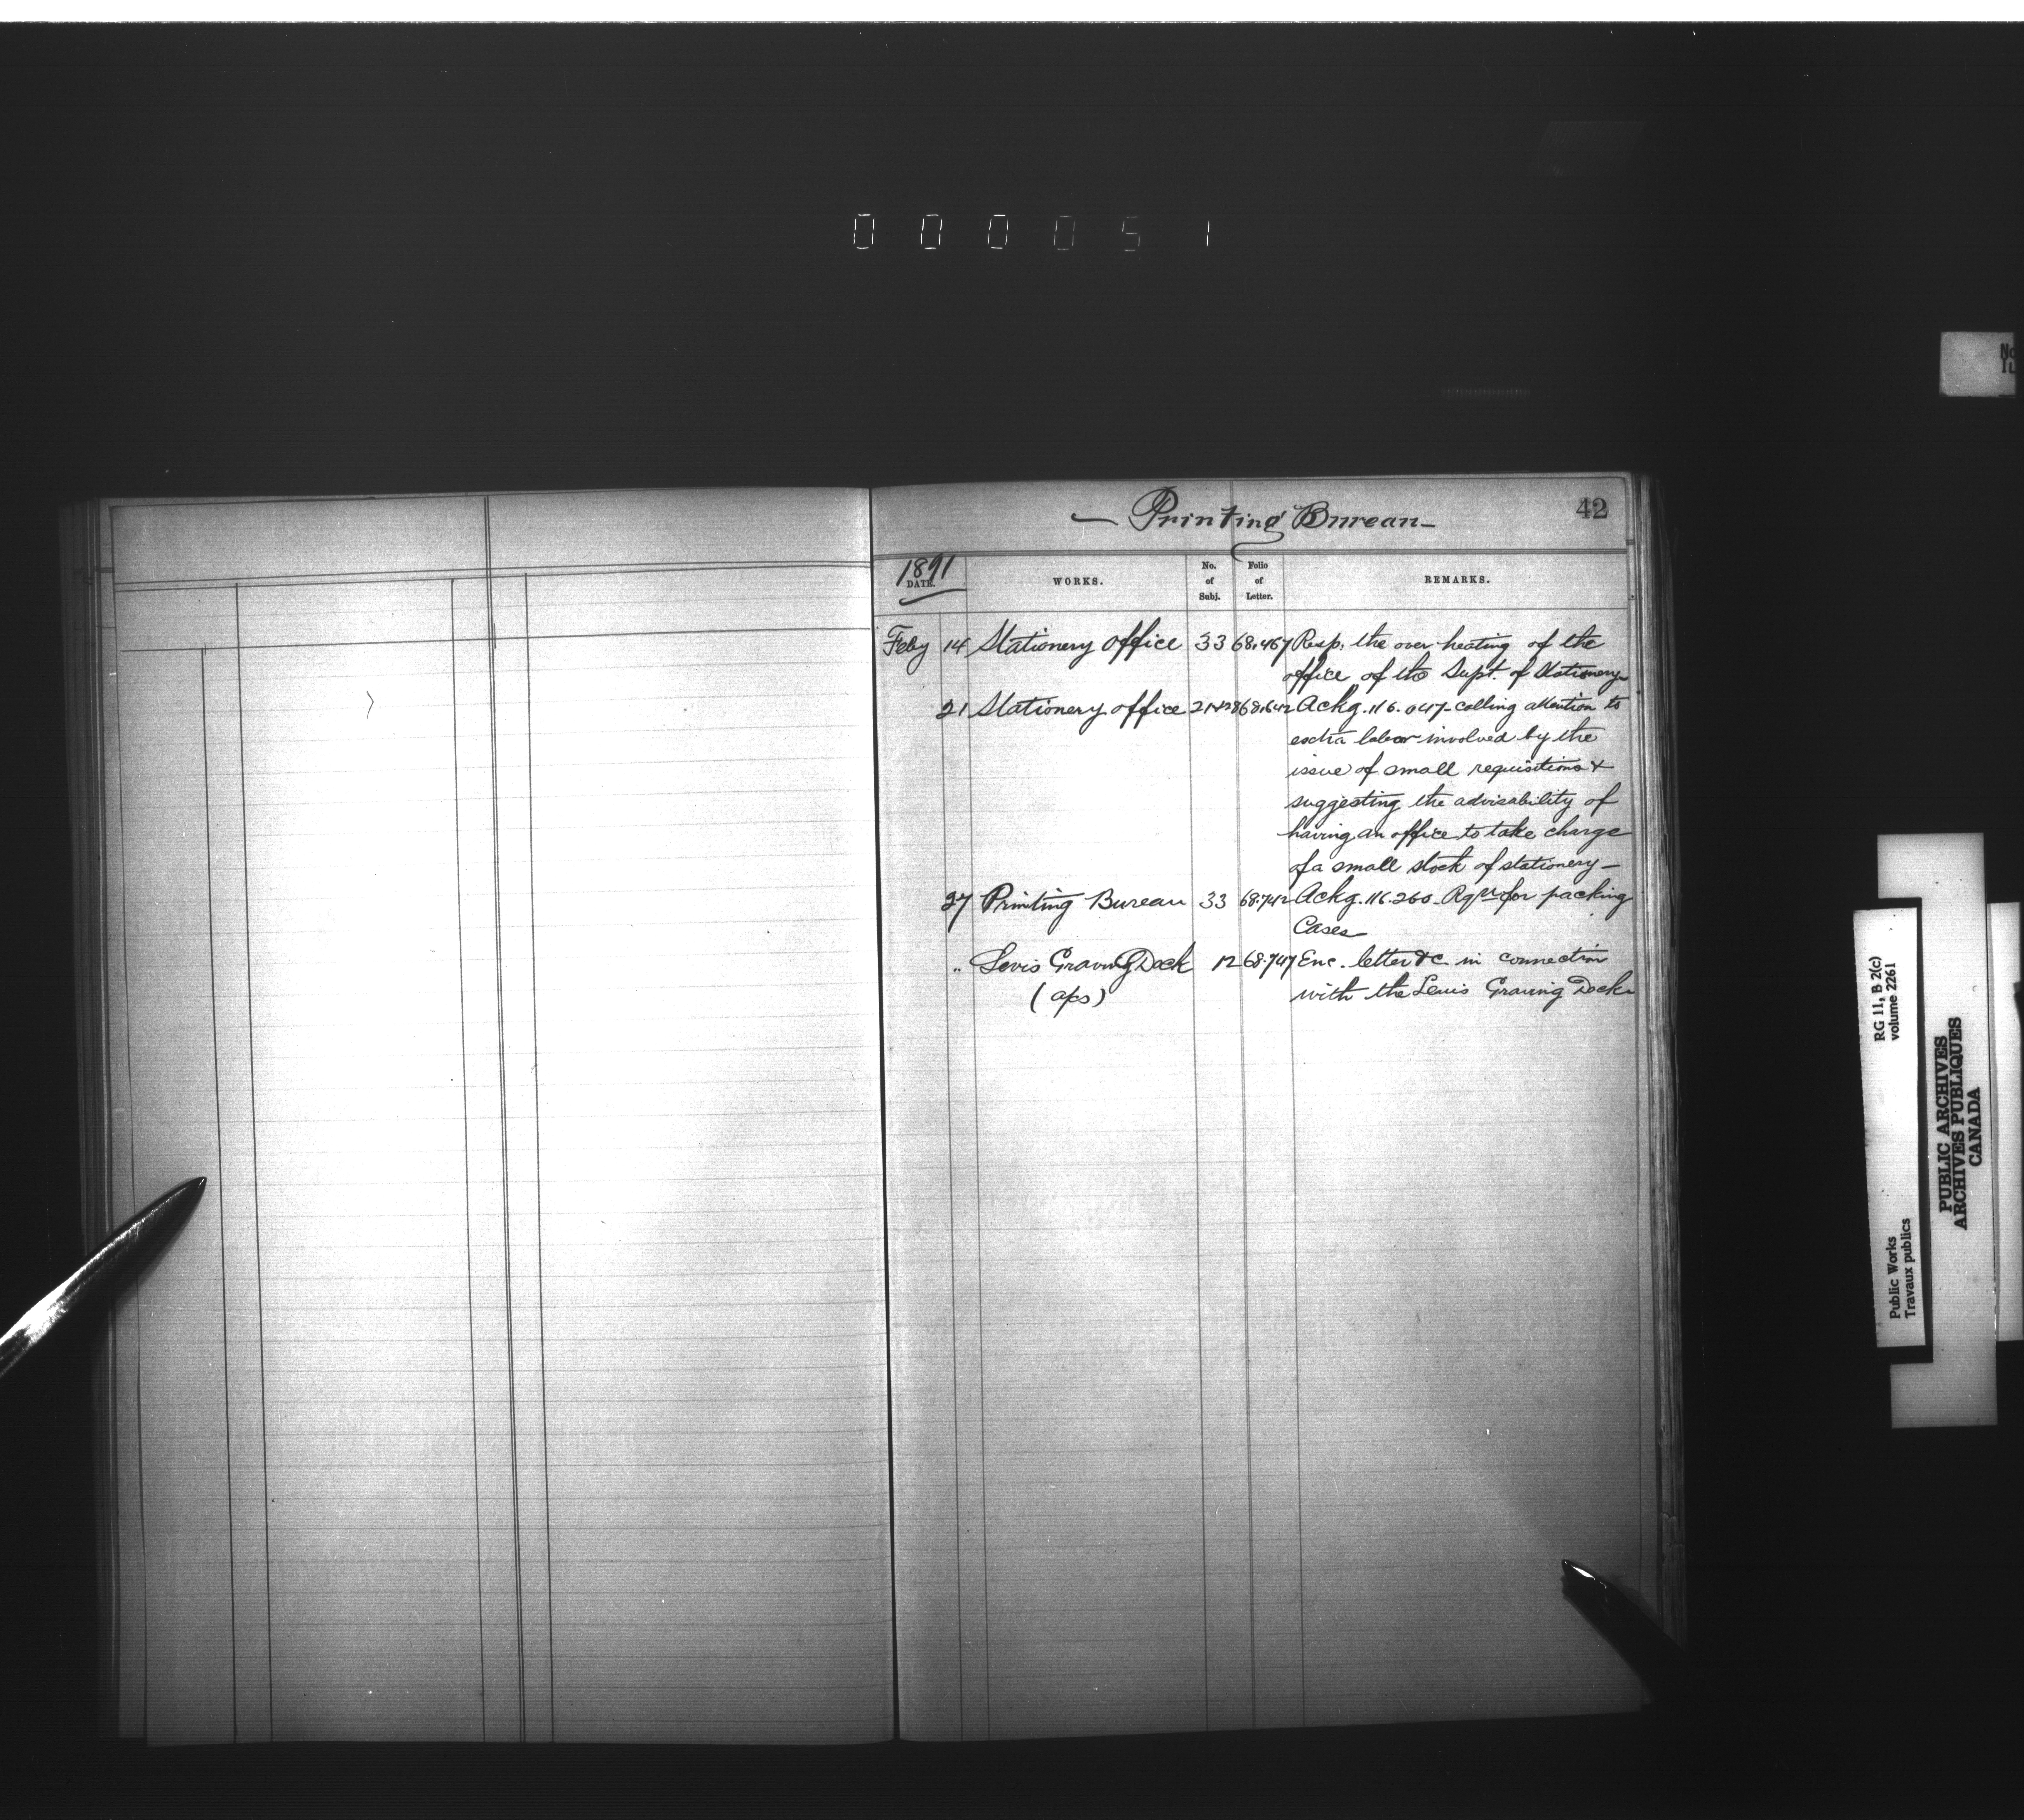 000051
— Printing Bureau —
42
1891
DATE.
WORKS.
No. of Subj.
Folio of Letter.
REMARKS.
Feby 14 Stationery office 33 68.467 Resp. the over heating of the
office of the Supt. of Stationery
21 Stationery office 68.642 Ackg. 116.047 - calling attention to
extra labor involved by the
issue of small requisitions &
suggesting the advisability of
having an office to take charge
of a small stock of stationery —
27 Printing Bureau 33 68.742 Ackg. 116.260 - Rqn for packing
Cases
„ Levis Graving Dock 12 68.747 Enc. letter &c in connection
(aps) with the Levis Graving Dock
RG 11, B 2(c)
volume 2261
Public Works
Travaux publics
PUBLIC ARCHIVES
ARCHIVES PUBLIQUES
CANADA